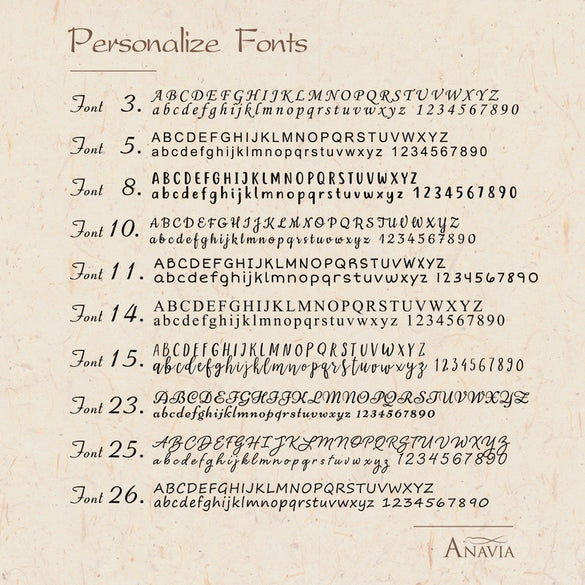 Personalize Fonts
Font 3. ABCDEFGHIJKLMNOPQRSTUVWXYZ
abcdefghijklmnopqrstuvwxyz 1234567890
Font 5. ABCDEFGHIJKLMNOPQRSTUVWXYZ
abcdefghijklmnopqrstuvwxyz 1234567890
Font 8. ABCDEFGHIJKLMNOPQRSTUVWXYZ
abcdefghijklmnopqrstuvwxyz 1234567890
Font 10. ABCDEFGHIJKLMNOPQRSTUVWXYZ
abcdefghijklmnopqrstuvwxyz 1234567890
Font 11. ABCDEFGHIJKLMNOPQRSTUVWXYZ
abcdefghijklmnopqrstuvwxyz 1234567890
Font 14. ABCDEFGHIJKLMNOPQRSTUVWXYZ
abcdefghijklmnopqrstuvwxyz 1234567890
Font 15. ABCDEFGHIJKLMNOPQRSTUVWXYZ
abcdefghijklmnopqrstuvwxyz 1234567890
Font 23. ABCDEFGHIJKLMNOPQRSTUVWXYZ
abcdefghijklmnopqrstuvwxyz 1234567890
Font 25. ABCDEFGHIJKLMNOPQRSTUVWXYZ
abcdefghijklmnopqrstuvwxyz 1234567890
Font 26. ABCDEFGHIJKLMNOPQRSTUVWXYZ
abcdefghijklmnopqrstuvwxyz 1234567890
ANAVIA